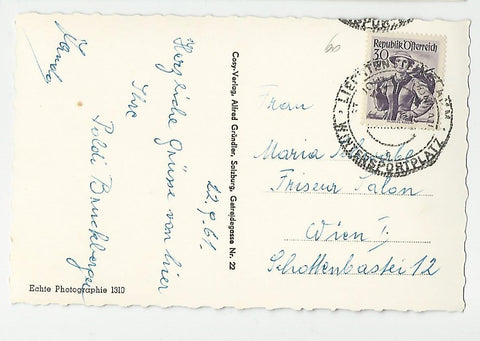 Wanda
Herzliche Grüsse von hier
Ihre
Poldi Bruckberger
22.9.61.
Cosy-Verlag, Alfred Gründler, Salzburg, Getreidegasse Nr. 22
Echte Photographie 1310
60
Republik Österreich
30
WINTERSPORTPLATZ
Frau
Maria
Friseur Salon
Wien I,
Schottenbastei 12